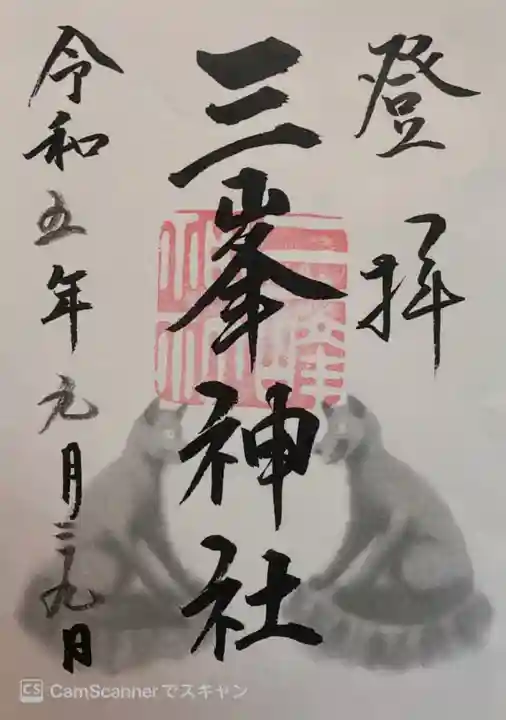 登拝
三峯神社
令和五年九月二九日
CS CamScannerでスキャン